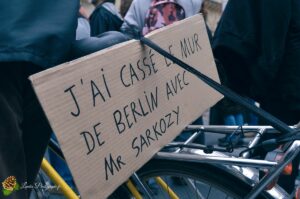 J'AI CASSÉ LE MUR
DE BERLIN AVEC
Mr SARKOZY